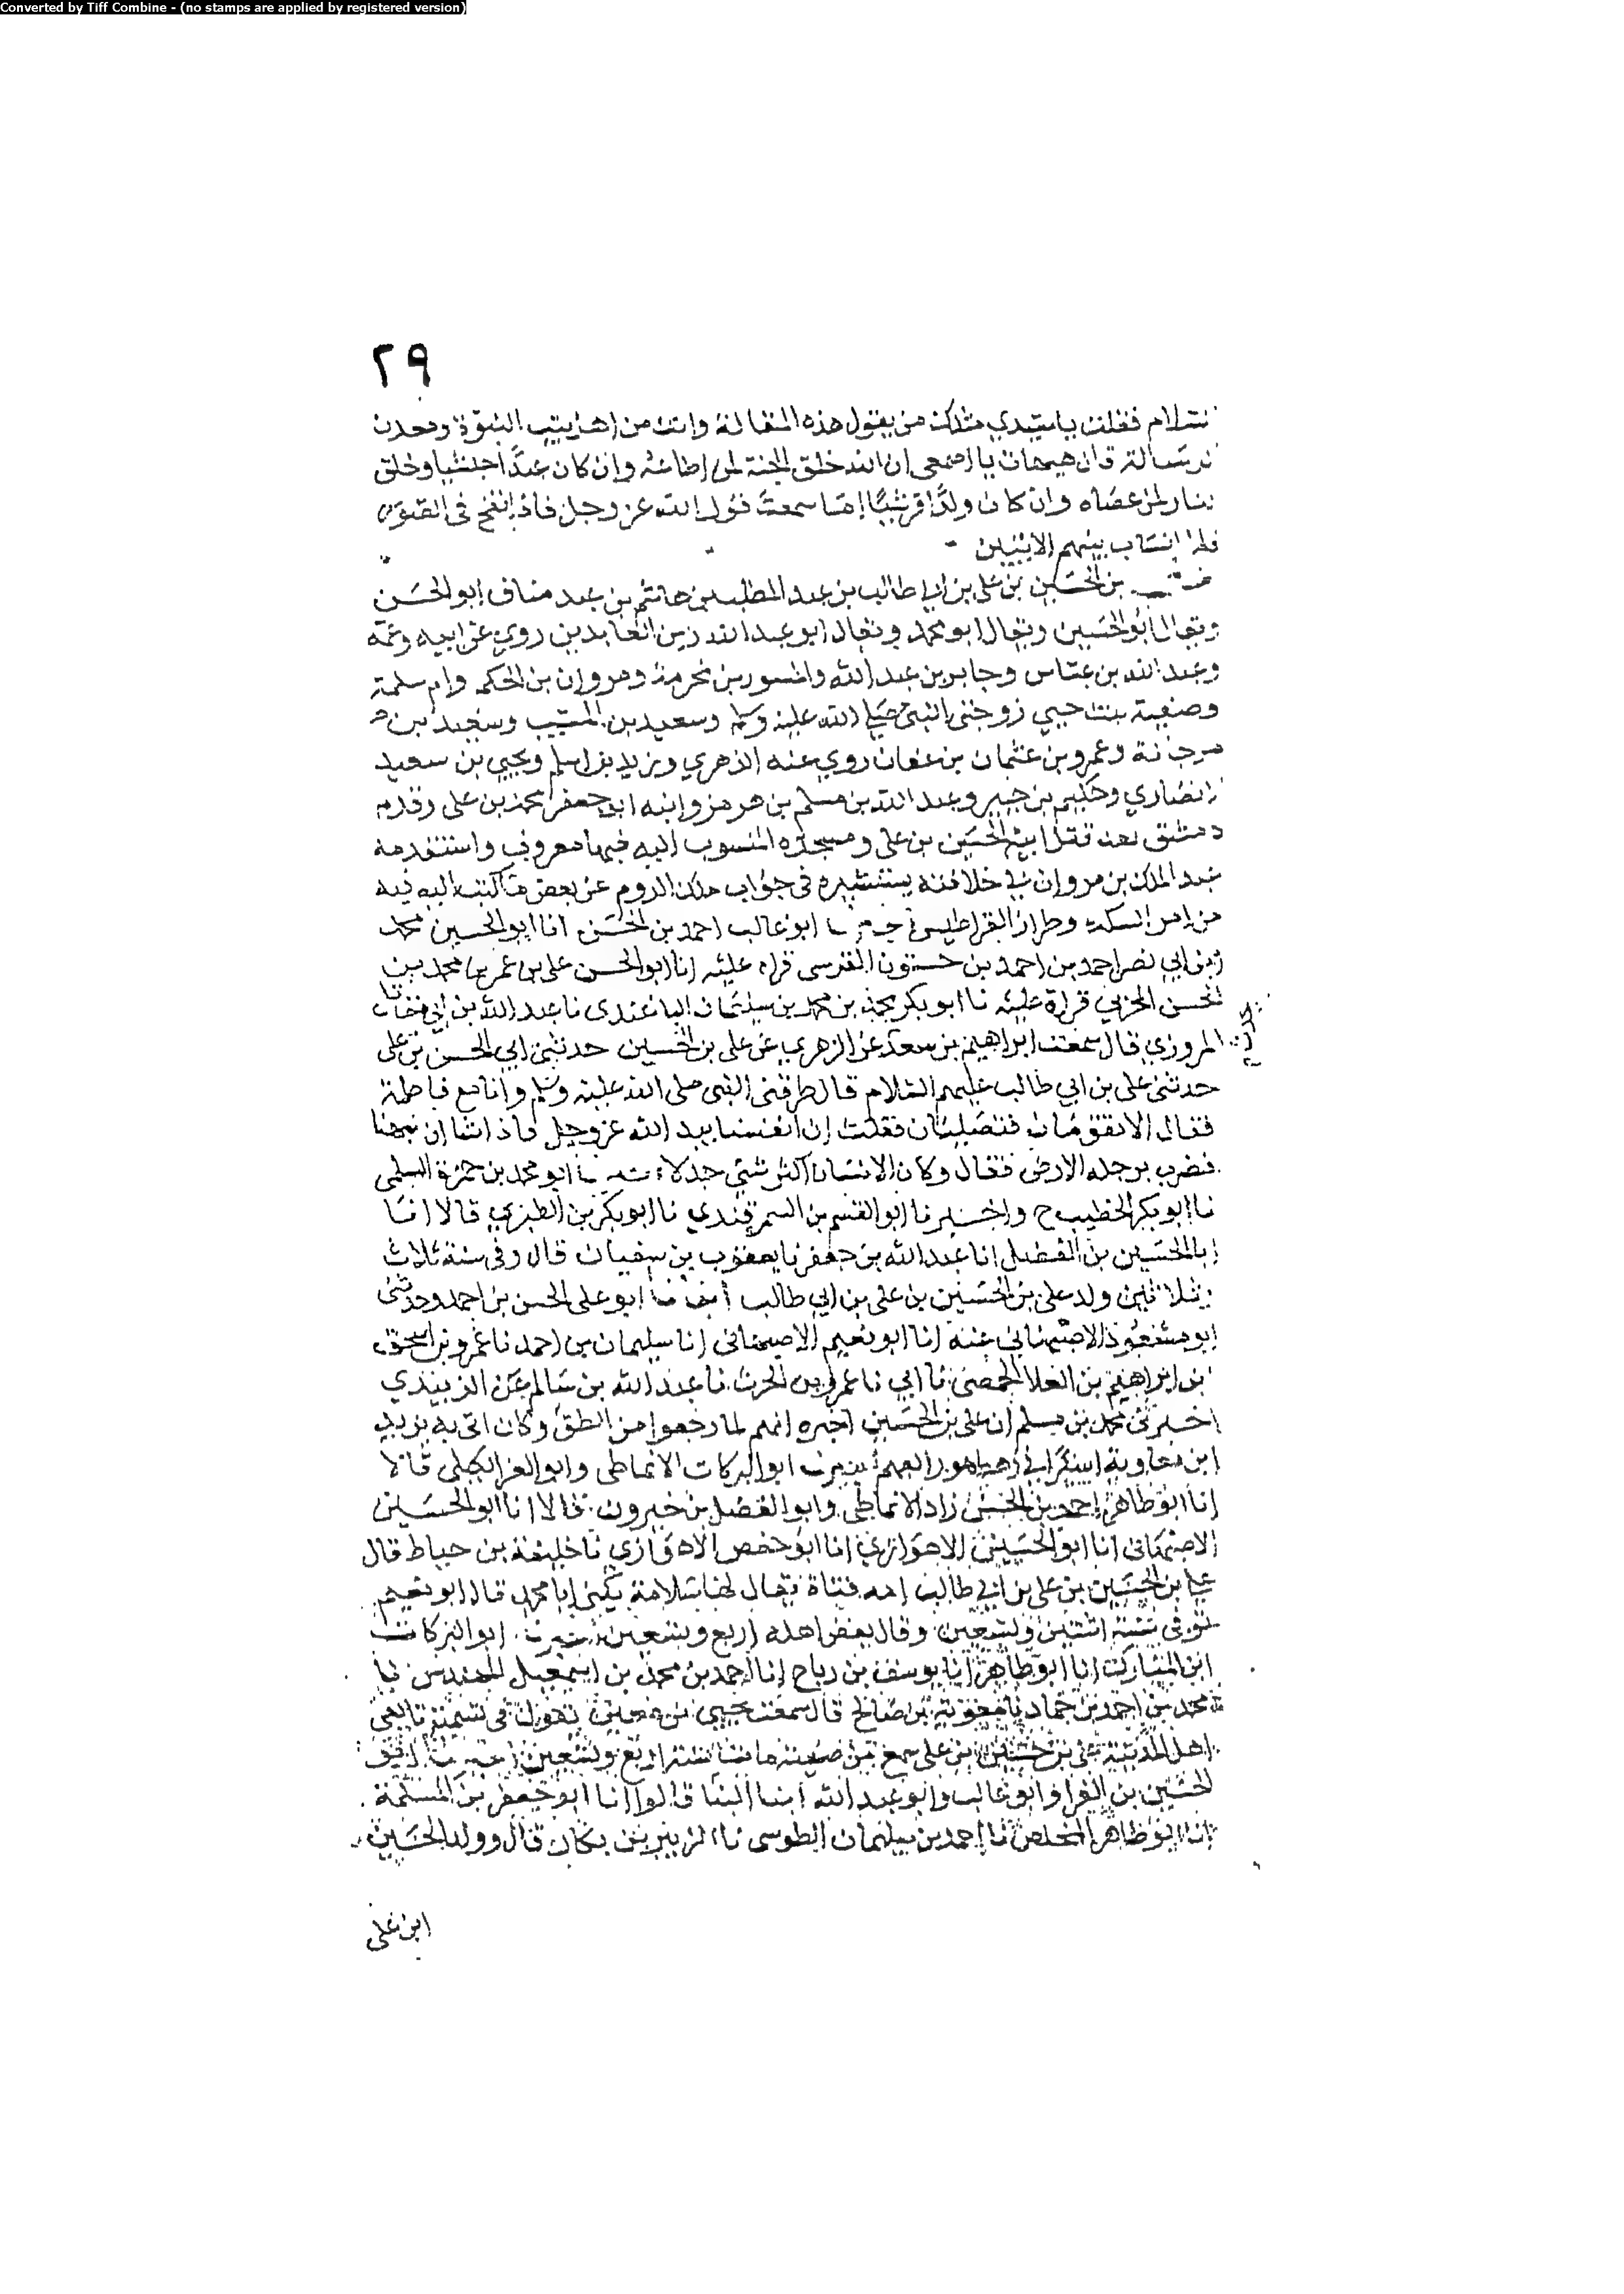 Converted by Tiff Combine - (no stamps are applied by registered version)
٢٩
فقلت يا سيدي مثلك من يقول هذه المقالة وانت من اهل بيت النبوة ومعدن
قال هيهات يا اصمعي ان الله خلق الجنة لمن اطاعه وان كان عبدا حبشيا وخلق
لمن عصاه وان كان ولدا قرشيا اما سمعت قول الله عز وجل فاذا نفخ في الصور
فلا انساب بينهم
بن الحسين بن علي بن ابي طالب بن عبد المطلب بن هاشم بن عبد مناف ابو الحسن
ويقال ابو الحسين ويقال ابو محمد ويقال ابو عبد الله زين العابدين روي عن ابيه وعمه
وعبد الله بن عباس وجابر بن عبد الله والمسور بن مخرمة ومروان بن الحكم وام سلمة
وصفية بنت حيي زوجتي النبي صلى الله عليه وسلم وسعيد بن المسيب وسعيد بن
مرجانة وعمرو بن عثمان بن عفان روي عنه الزهري وزيد بن اسلم ويحيي بن سعيد
وحكيم بن جبير وعبد الله بن مسلم بن هرمز وابنه ابو جعفر محمد بن علي وقدم
دمشق بعد قتل ابيه الحسين بن علي ومسجده المنسوب اليه فيها معروف واستقدمه
عبد الملك بن مروان في خلافته يستشيره في جواب ملك الروم عن بعض ما كتب اليه فيه
من امر السكة وطراز القراطيس ابو غالب احمد بن الحسن انا ابو الحسين محمد
بن احمد بن حسنون النرسي قراه عليه انا ابو الحسن علي بن عمر بن محمد بن
الحسن الحربي قراة عليه نا ابو بكر محمد بن محمد بن سليمان الباغندي نا عبد الله بن
المروزي قال سمعت ابراهيم بن سعد عن الزهري عن علي بن الحسين حدثني ابي الحسين بن علي
حدثني علي بن ابي طالب عليهم السلام قال طرقني النبي صلى الله عليه وسلم وانا مع فاطمة
فقال الا تقومان فتصليان فقلت ان انفسنا بيد الله عز وجل فاذا شا ان نبهنا
فضرب برجله الارض فقال وكان الانسان اكثر شي جدلا ابو محمد بن حمزة السلمي
نا ابو بكر الخطيب ح واخبرنا ابو القسم بن السمرقندي نا ابو بكر بن الطبري قالا انا
ابو الحسين بن الفضل انا عبد الله بن جعفر نا يعقوب بن سفيان قال وفي سنة ثلاث
وثلاثين ولد علي بن الحسين بن علي بن ابي طالب ابو علي الحسن بن احمد وحدثني
ابو مسعود الاصبهاني عنه انا ابو نعيم الاصبهاني انا سليمان بن احمد نا عمرو بن اسحق
بن ابراهيم بن العلا الحمصي نا ابي نا عمرو بن الحرث نا عبد الله بن سالم عن الزبيدي
اخبرني محمد بن مسلم ان علي بن الحسين اخبره انهم لما رجعوا من الطف وكان اتي به يزيد
ابن معاوية ابو البركات الانماطي وابو العز الكيلي قالا
انا ابو طاهر احمد بن الحسن زاد الانماطي وابو الفضل بن خيرون قالا انا ابو الحسين
الاصبهاني انا ابو الحسين الاهوازي انا ابو حفص الاهوازي نا خليفة بن خياط قال
علي بن الحسين بن علي بن ابي طالب امه فتاة يقال لها سلامة يكنى ابا محمد قال ابو نعيم
توفي سنة اثنتين وتسعين وقال بعض اهله اربع وتسعين ابو البركات
ابن المبارك انا ابو طاهر انا يوسف بن رباح انا احمد بن محمد بن اسمعيل المهندس نا
محمد بن احمد بن حماد نا معوية بن صالح قال سمعت يحيي بن معين يقول في تسمية تابعي
اهل المدينة علي بن حسين بن علي سمع من صفية مات سنة اربع وتسعين
الحسين بن الفرا وابو غالب وابو عبد الله ابنا البنا قالوا انا ابو جعفر بن المسلمة
انا ابو طاهر المخلص نا احمد بن سليمان الطوسي نا الزبير بن بكار قال وولد الحسين
ابن علي